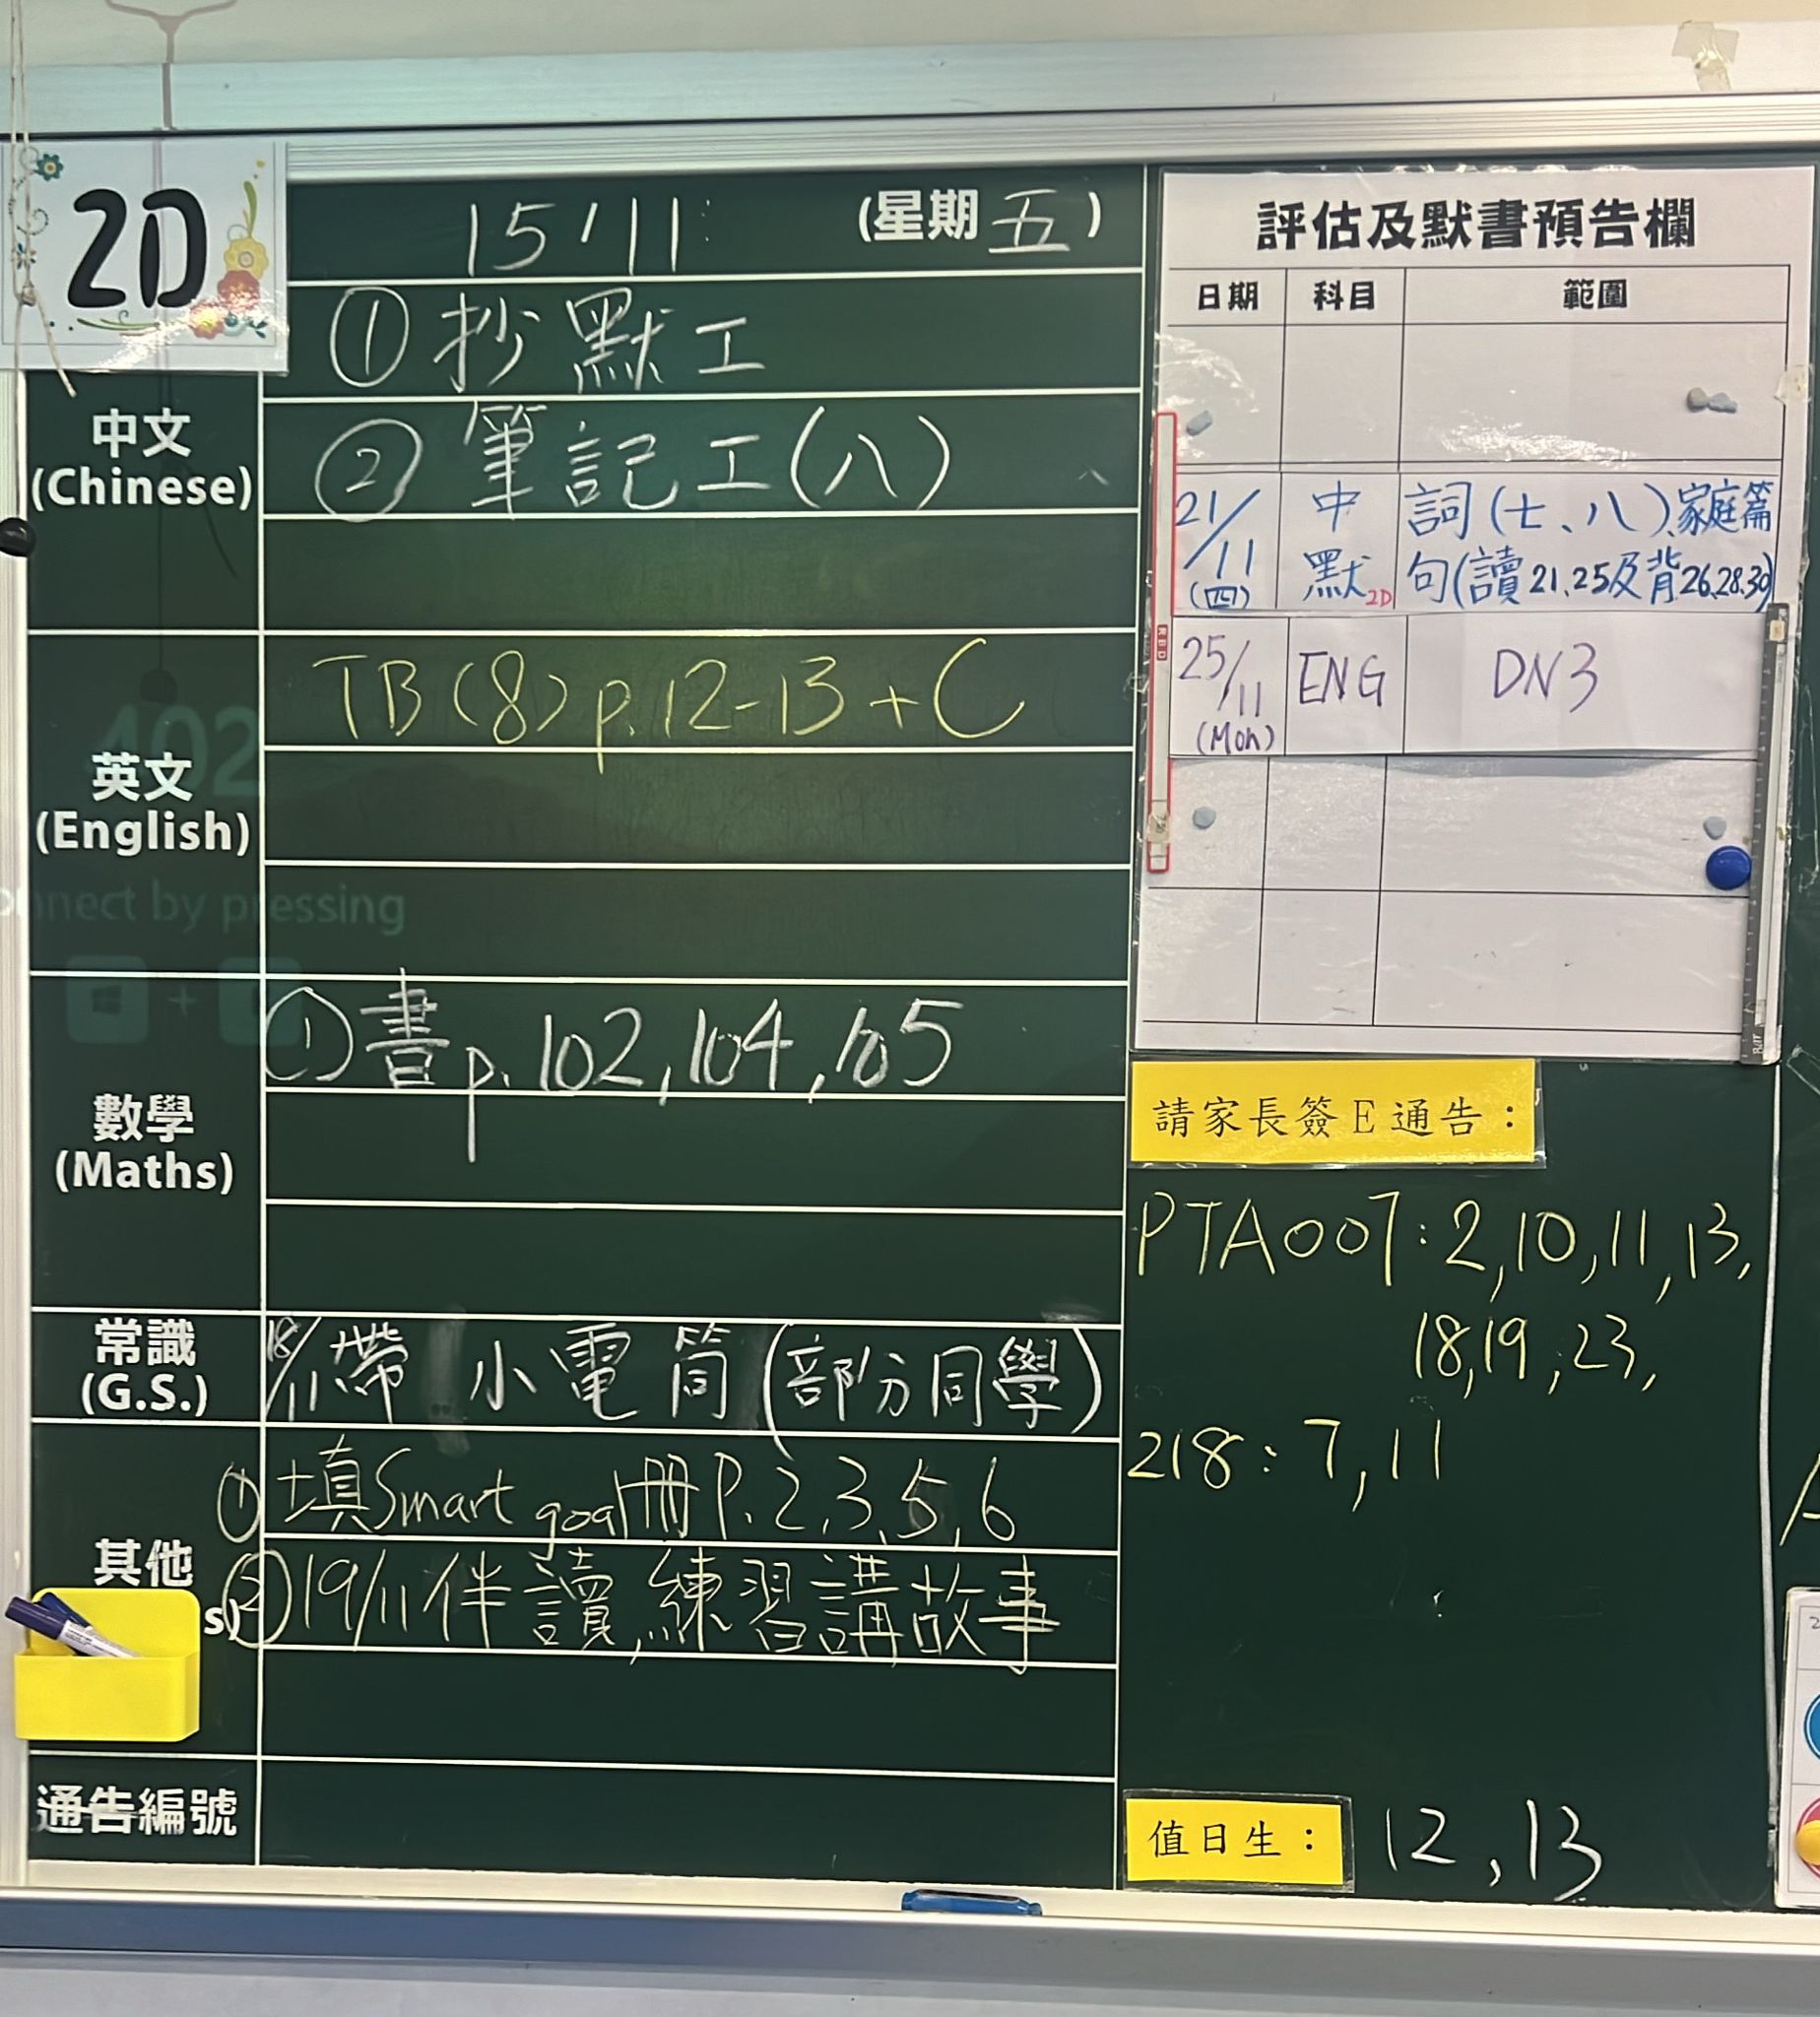 2D
15/11 (星期五)
中文
(Chinese)
① 抄默工
② 筆記工(八)
英文
(English)
TB (8) p.12-13 + C
數學
(Maths)
① 書 p.102,104,105
常識
(G.S.)
18/11 帶小電筒(部分同學)
其他
① 填Smart goal冊 P.2,3,5,6
② 19/11 伴讀,練習講故事
通告編號
402
nnect by pressing
+
評估及默書預告欄
日期 科目 範圍
21/11 (四) 中默 2D 詞(七、八)、家庭篇
句(讀21、25及背26、28、30)
25/11 (Mon) ENG DN3
請家長簽E通告:
PTA007: 2,10,11,13,
18,19,23,
218: 7,11
值日生: 12,13